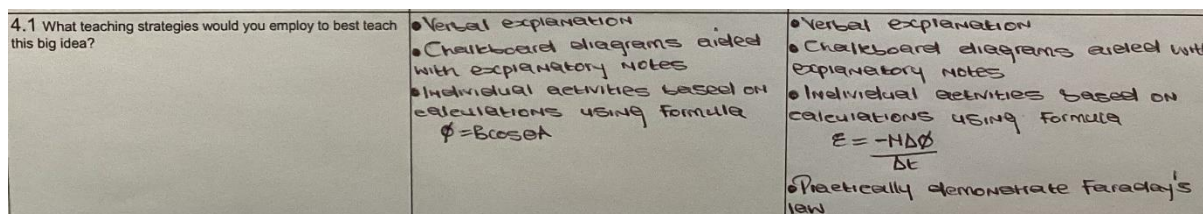 4.1 What teaching strategies would you employ to best teach
this big idea?
• Verbal explanation
• Chalkboard diagrams aided
with explanatory notes
• Individual activities based on
calculations using formula
φ = BcosθA
• Verbal explanation
• Chalkboard diagrams aided with
explanatory notes
• Individual activities based on
calculations using formula
ε = -NΔφ
Δt
• Practically demonstrate Faraday's
law